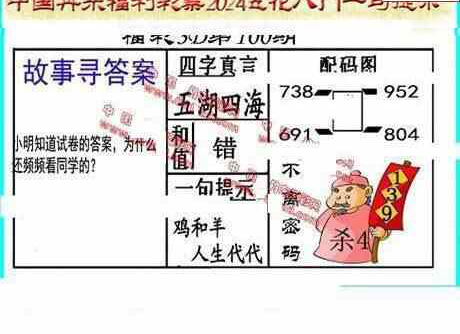 2024五花八门一句提示
福彩3D第100期
故事寻答案
小明知道试卷的答案，为什么
还频频看同学的？
四字真言
五湖四海
和值
错
一句提示
鸡和羊
人生代代
配码图
738 952
691 804
不离密码
139
杀4